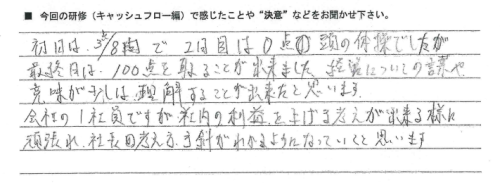 ■ 今回の研修（キャッシュフロー編）で感じたことや“決意”などをお聞かせ下さい。
初日は、3点/8問で2日目は0点の頭の体操でしたが
最終日は、100点を取ることが出来ました。経営についての言葉や
意味が少しは、理解することが出来たと思います。
会社の1社員ですが、社内の利益を上げる考えが出来る様に
頑張れ、社長の考え方、方針がわかるようになっていくと思います